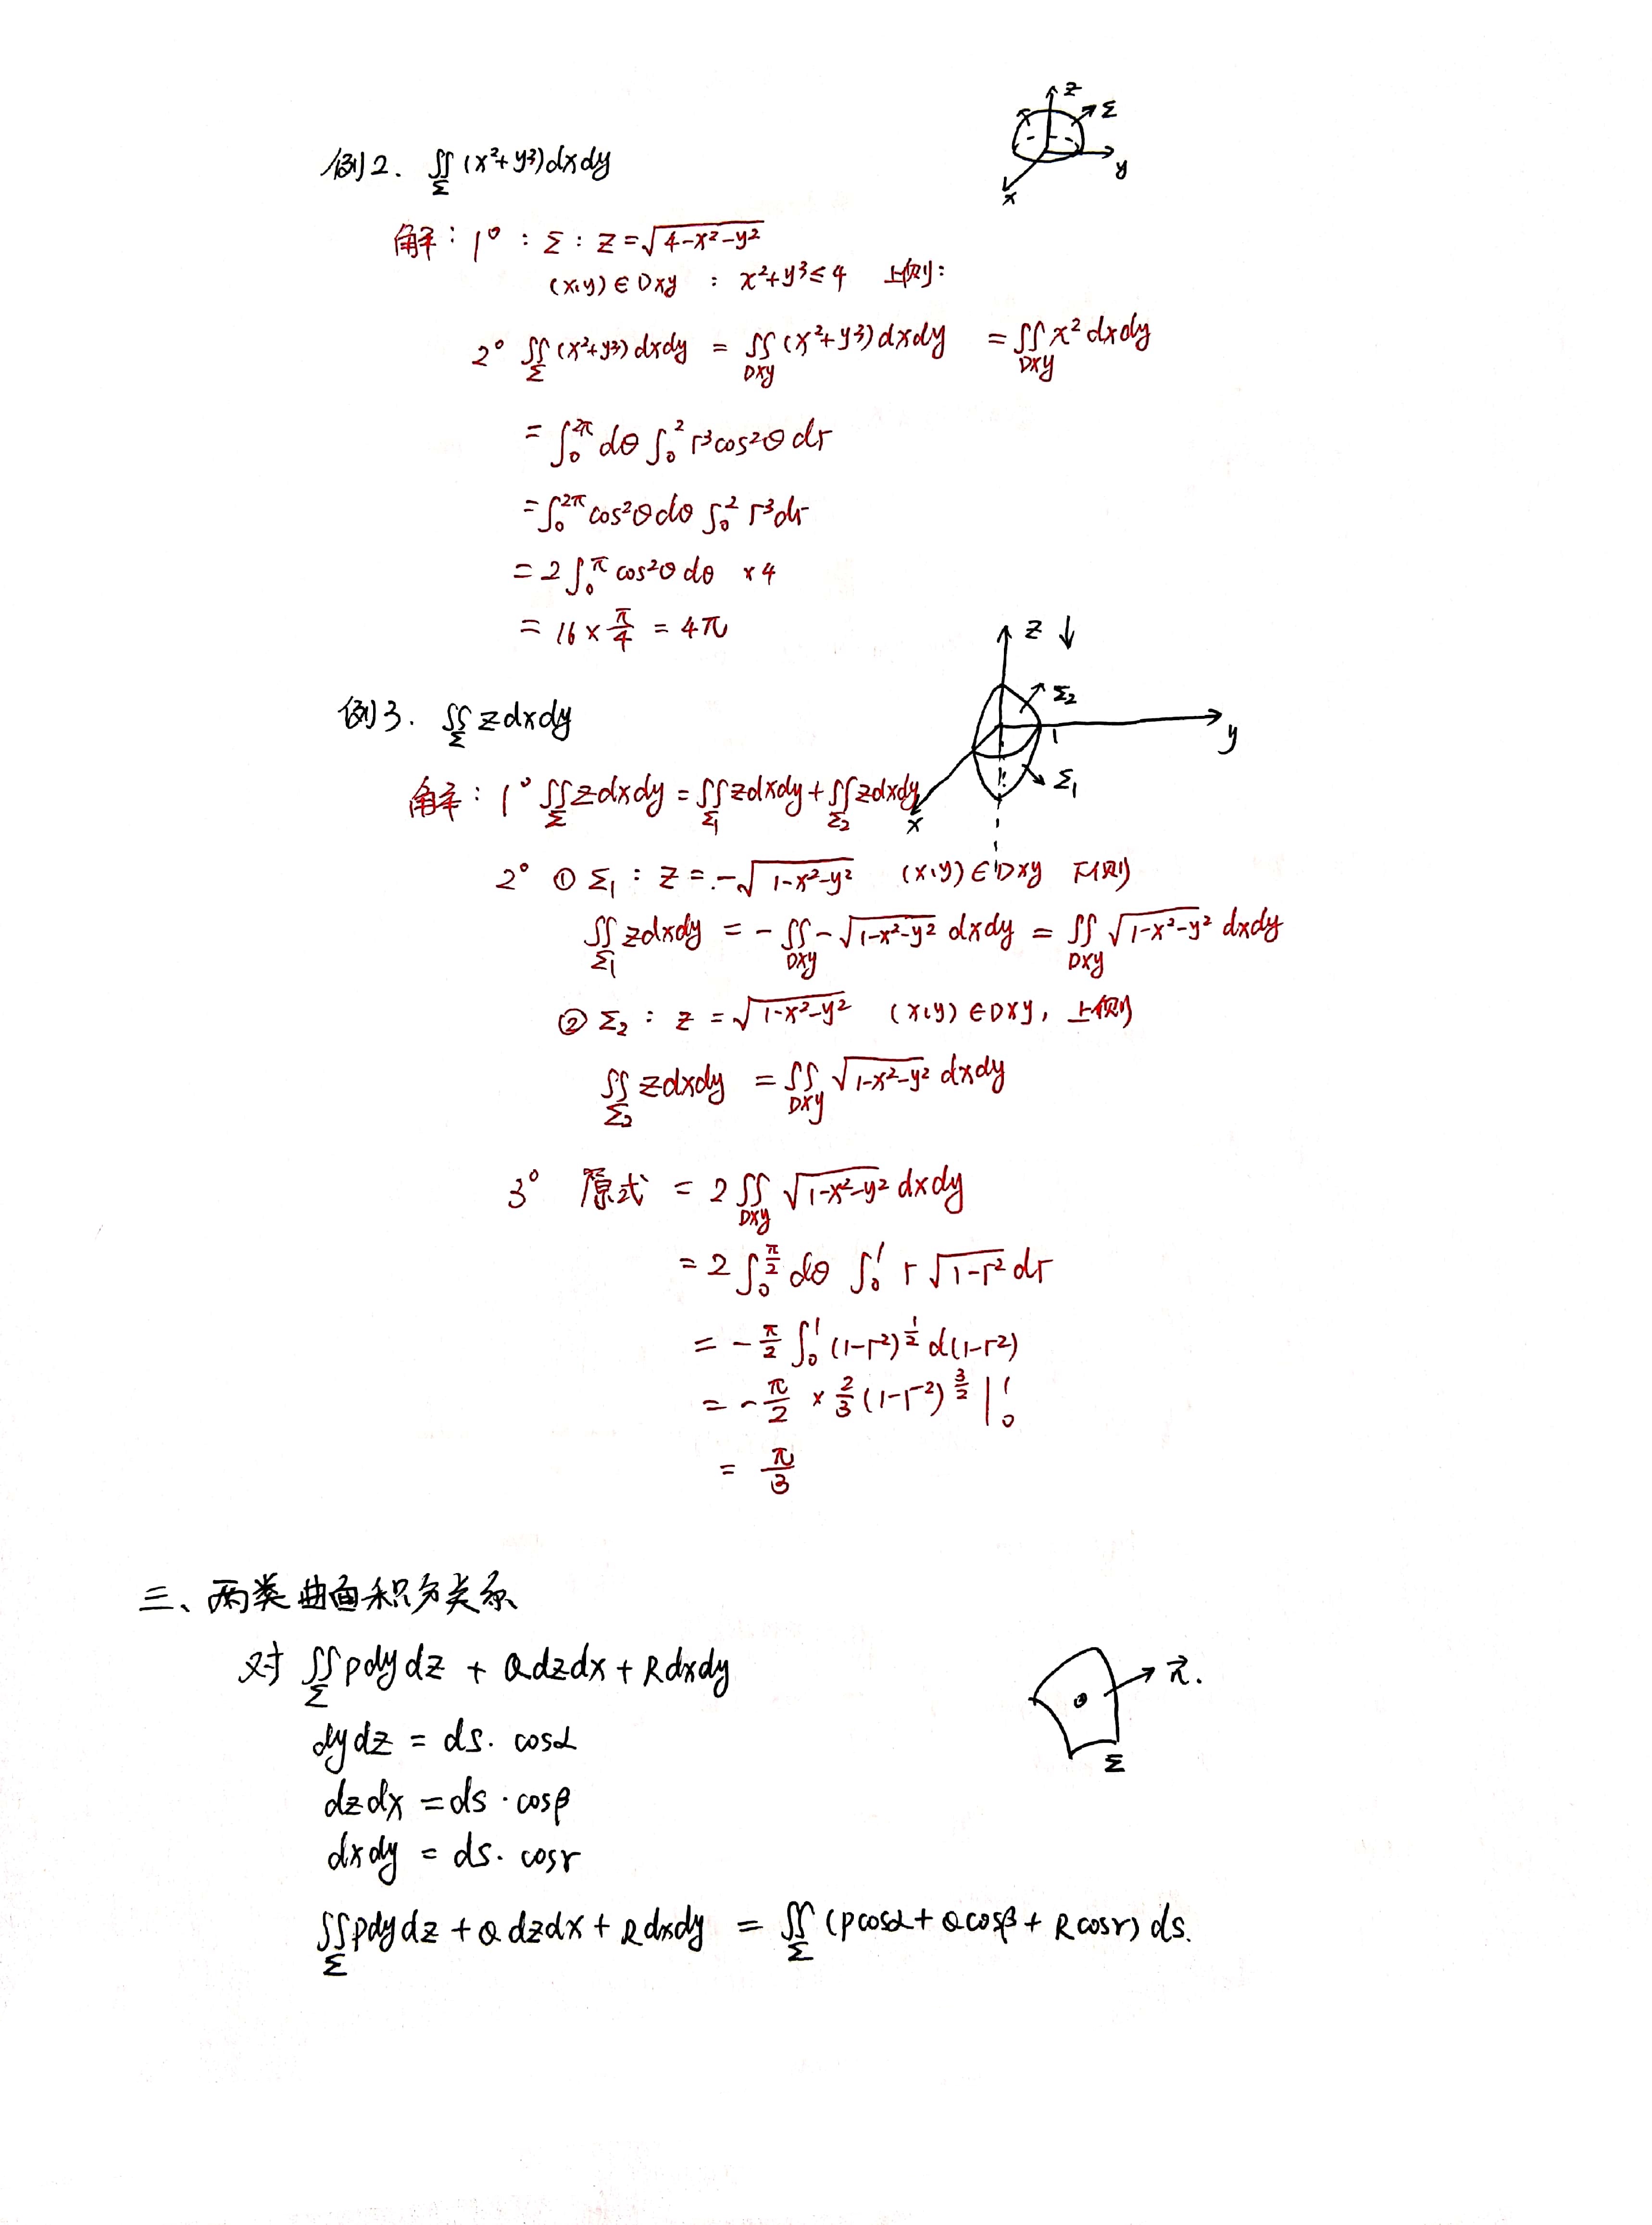 例2. ∬_Σ (x²+y³)dxdy
z
Σ
y
x
解: 1° : Σ : z=√(4-x²-y²)
(x,y)∈Dxy : x²+y³≤4 上侧:
2° ∬_Σ (x²+y³)dxdy = ∬_Dxy (x²+y³)dxdy = ∬_Dxy x²dxdy
= ∫₀^2π dθ ∫₀² r³cos²θ dr
= ∫₀^2π cos²θdθ ∫₀² r³dr
= 2∫₀^π cos²θdθ ×4
= 16×π/4 = 4π
z ↓
Σ₂
1
y
Σ₁
x
例3. ∬_Σ zdxdy
解: 1° ∬_Σ zdxdy = ∬_Σ₁ zdxdy + ∬_Σ₂ zdxdy
2° ① Σ₁ : z = -√(1-x²-y²) (x,y)∈Dxy 下侧
∬_Σ₁ zdxdy = -∬_Dxy -√(1-x²-y²) dxdy = ∬_Dxy √(1-x²-y²) dxdy
② Σ₂ : z = √(1-x²-y²) (x,y)∈Dxy, 上侧
∬_Σ₂ zdxdy = ∬_Dxy √(1-x²-y²) dxdy
3° 原式 = 2∬_Dxy √(1-x²-y²) dxdy
= 2∫₀^(π/2) dθ ∫₀¹ r√(1-r²) dr
= -π/2 ∫₀¹ (1-r²)^(1/2) d(1-r²)
= -π/2 × 2/3 (1-r²)^(3/2) |₀¹
= π/3
三、两类曲面积分关系
对 ∬_Σ Pdydz + Qdzdx + Rdxdy
n⃗.
Σ
dydz = ds. cosα
dzdx = ds · cosβ
dxdy = ds. cosγ
∬_Σ Pdydz + Qdzdx + Rdxdy = ∬_Σ (Pcosα + Qcosβ + Rcosγ) ds.